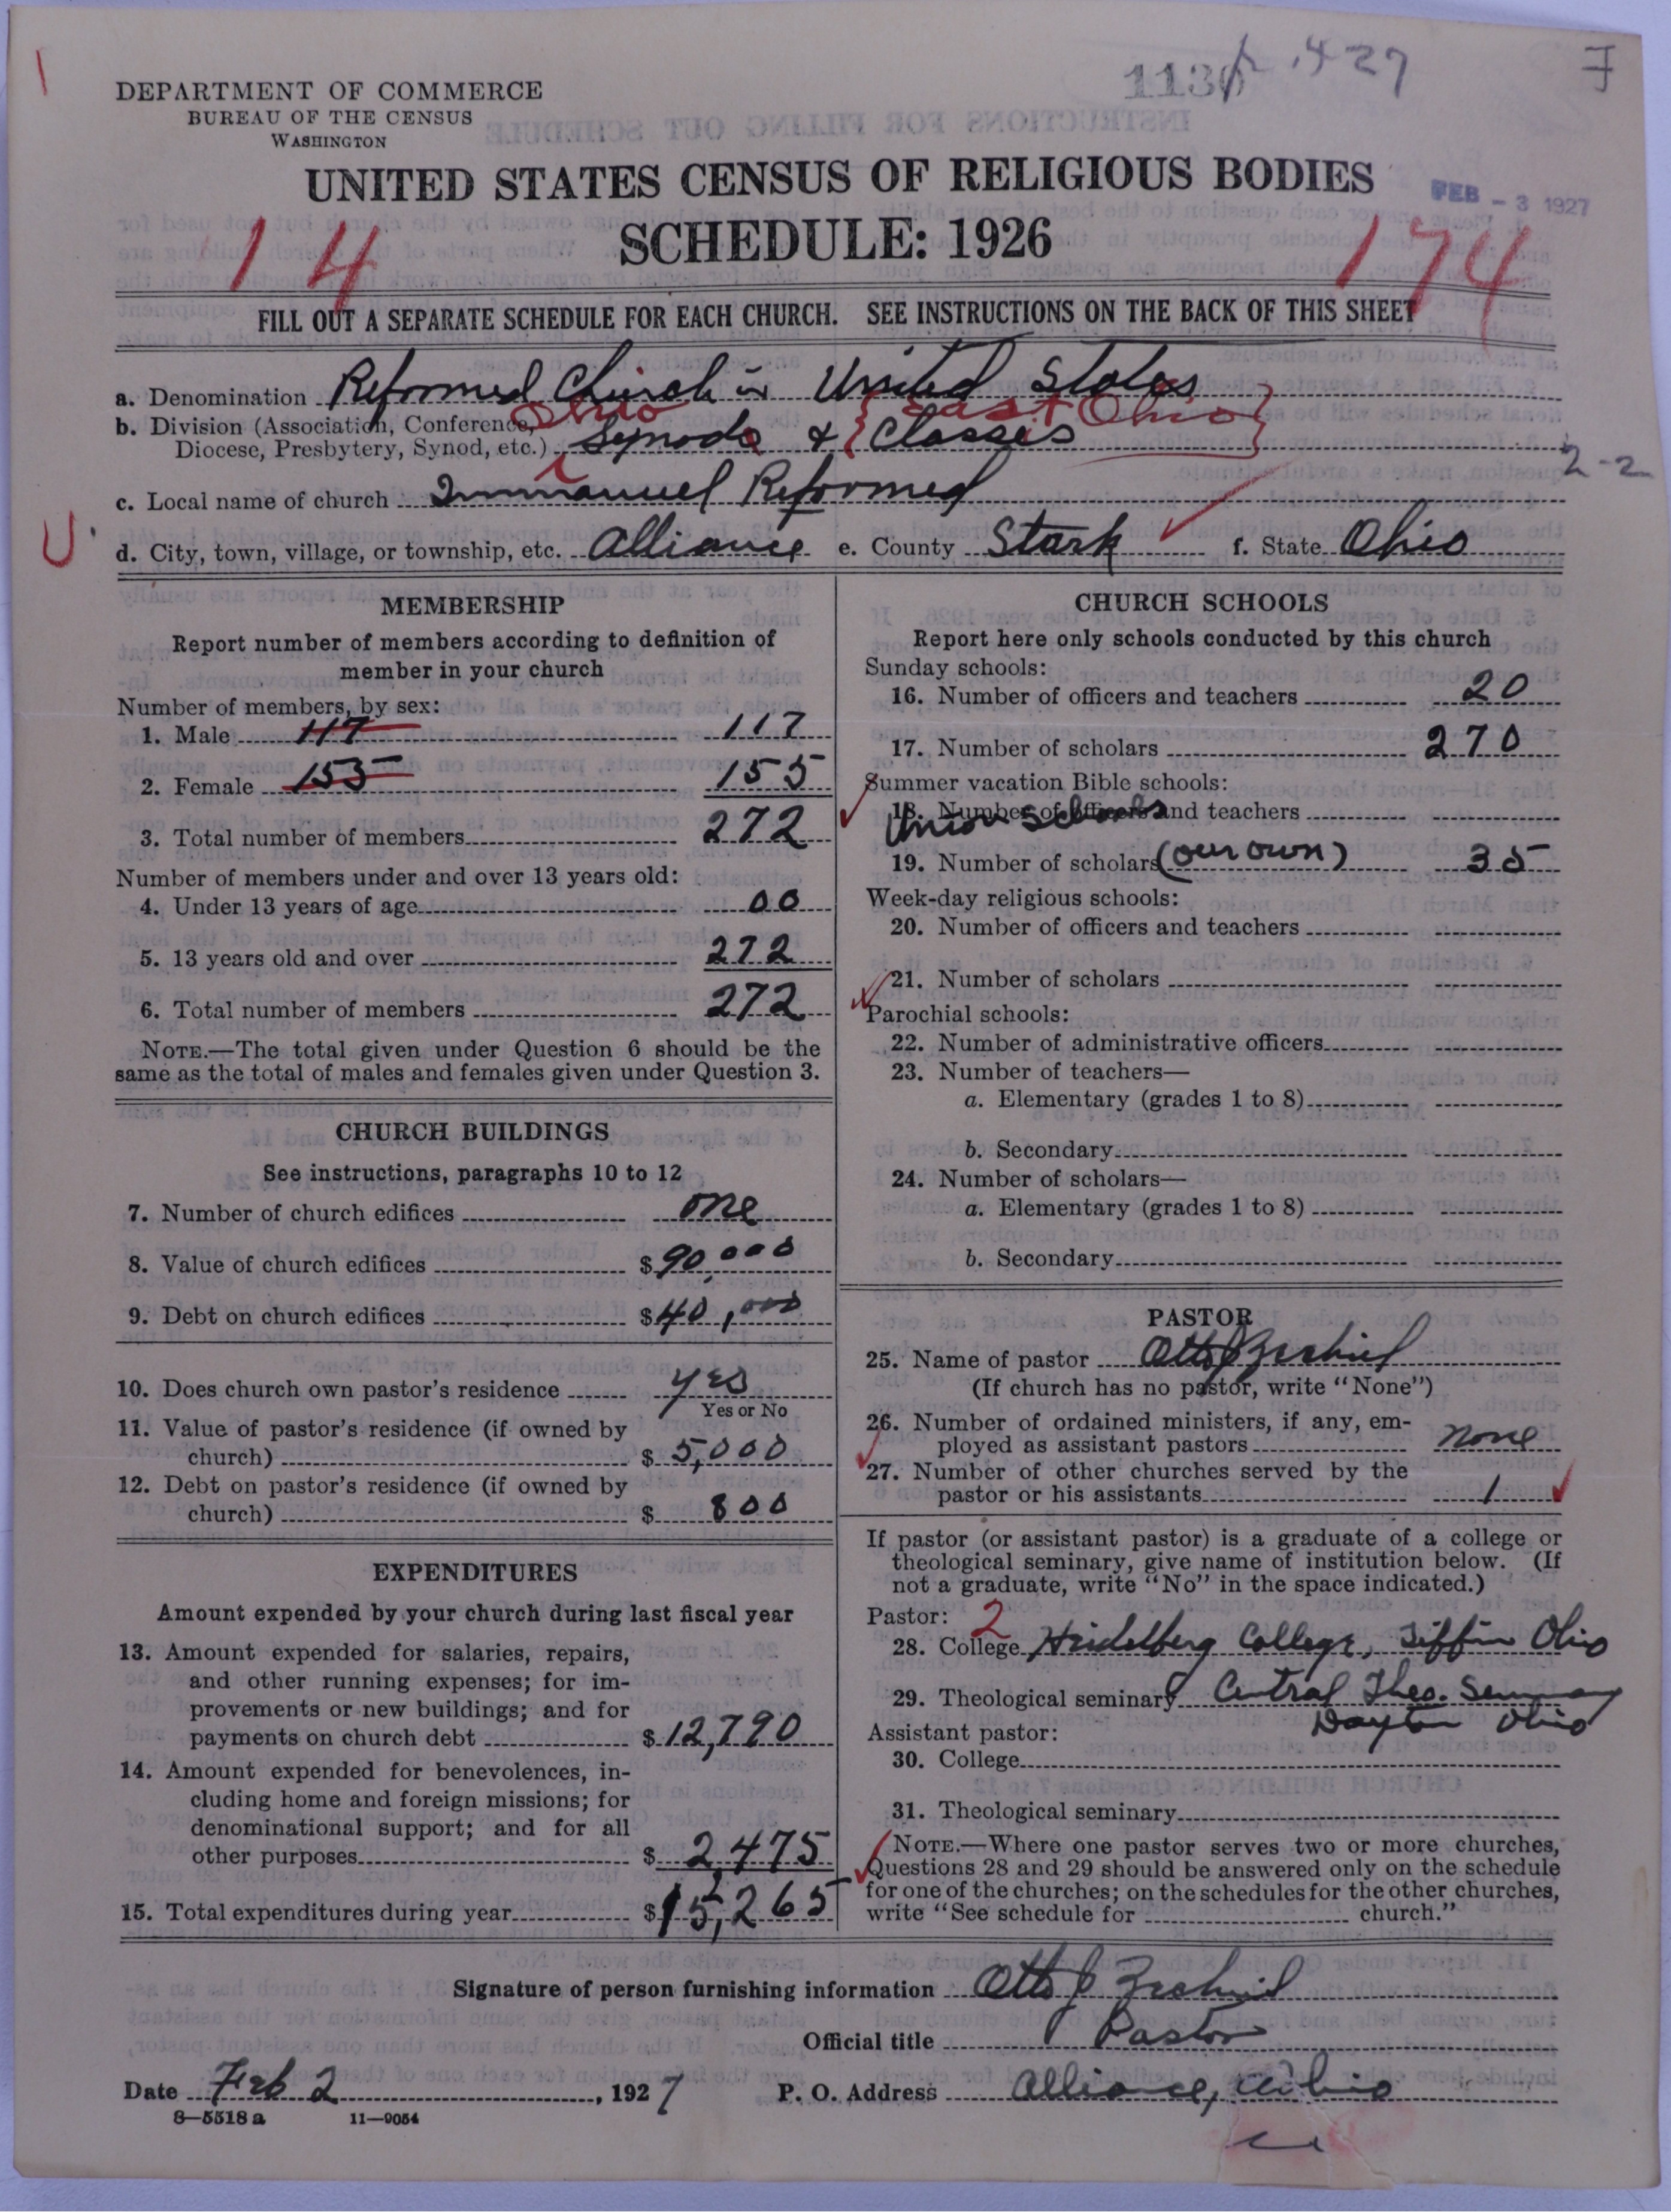 DEPARTMENT OF COMMERCE
BUREAU OF THE CENSUS
WASHINGTON
1136
427
UNITED STATES CENSUS OF RELIGIOUS BODIES
FEB - 3 1927
SCHEDULE: 1926
14
174
FILL OUT A SEPARATE SCHEDULE FOR EACH CHURCH. SEE INSTRUCTIONS ON THE BACK OF THIS SHEET
a. Denomination Reformed Church in United States
b. Division (Association, Conference, Ohio East Ohio
Diocese, Presbytery, Synod, etc.) Synods & Classes
2-2
c. Local name of church Immanuel Reformed
U
d. City, town, village, or township, etc. Alliance e. County Stark f. State Ohio
MEMBERSHIP
Report number of members according to definition of
member in your church
Number of members, by sex:
1. Male 117 117
2. Female 155 155
3. Total number of members 272
Number of members under and over 13 years old:
4. Under 13 years of age 00
5. 13 years old and over 272
6. Total number of members 272
NOTE.—The total given under Question 6 should be the
same as the total of males and females given under Question 3.
CHURCH BUILDINGS
See instructions, paragraphs 10 to 12
7. Number of church edifices one
8. Value of church edifices $ 90,000
9. Debt on church edifices $ 40,000
10. Does church own pastor's residence yes
Yes or No
11. Value of pastor's residence (if owned by
church) $ 5,000
12. Debt on pastor's residence (if owned by
church) $ 800
EXPENDITURES
Amount expended by your church during last fiscal year
13. Amount expended for salaries, repairs,
and other running expenses; for im-
provements or new buildings; and for
payments on church debt $ 12,790
14. Amount expended for benevolences, in-
cluding home and foreign missions; for
denominational support; and for all
other purposes $ 2,475
15. Total expenditures during year $ 15,265
CHURCH SCHOOLS
Report here only schools conducted by this church
Sunday schools:
16. Number of officers and teachers 20
17. Number of scholars 270
Summer vacation Bible schools:
18. Number of officers and teachers
Union Schools
19. Number of scholars (our own) 35
Week-day religious schools:
20. Number of officers and teachers
21. Number of scholars
Parochial schools:
22. Number of administrative officers
23. Number of teachers—
a. Elementary (grades 1 to 8)
b. Secondary
24. Number of scholars—
a. Elementary (grades 1 to 8)
b. Secondary
PASTOR
25. Name of pastor Otto J Zechiel
(If church has no pastor, write "None")
26. Number of ordained ministers, if any, em-
ployed as assistant pastors none
27. Number of other churches served by the
pastor or his assistants 1
If pastor (or assistant pastor) is a graduate of a college or
theological seminary, give name of institution below. (If
not a graduate, write "No" in the space indicated.)
Pastor: 2
28. College Heidelberg College, Tiffin Ohio
29. Theological seminary Central Theo. Seminary
Dayton Ohio
Assistant pastor:
30. College
31. Theological seminary
NOTE.—Where one pastor serves two or more churches,
Questions 28 and 29 should be answered only on the schedule
for one of the churches; on the schedules for the other churches,
write "See schedule for church."
Signature of person furnishing information Otto J Zechiel
Official title Pastor
Date Feb 2, 1927 P. O. Address Alliance, Ohio
8—5518 a 11—9054